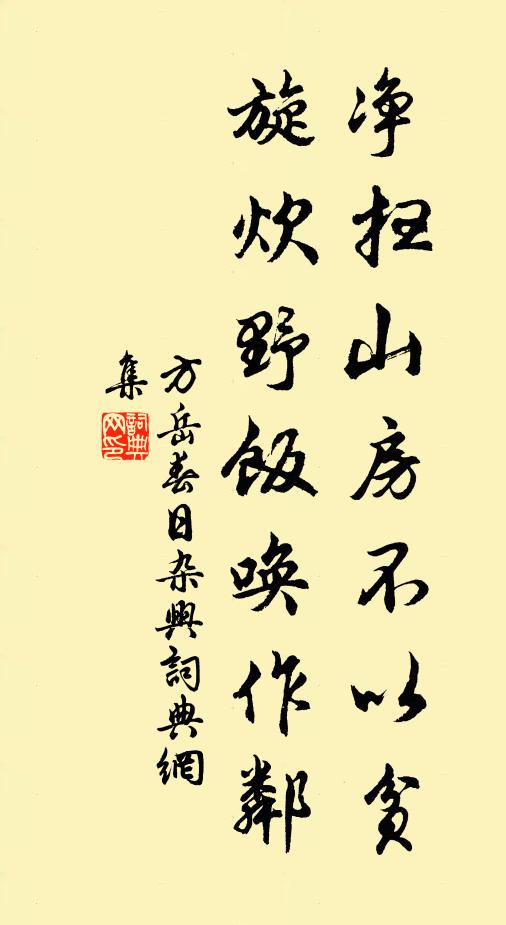 净扫山房不以贫
旋炊野飯唤作鄰
方岳春日杂興詞典網
集
詞典网印